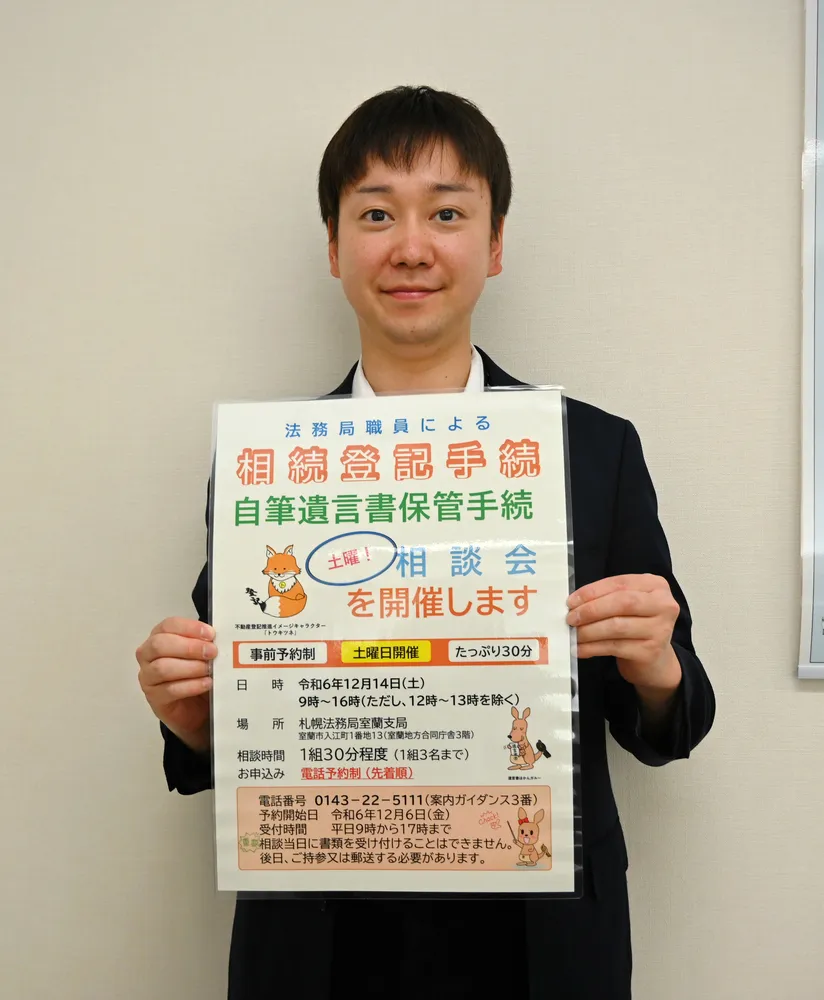 法務局職員による
相続登記手続
自筆遺言書保管手続
土曜！
相談会
を開催します
登記
不動産登記推進イメージキャラクター
「トウキツネ」
事前予約制 土曜日開催 たっぷり30分
日 時 令和6年12月14日（土）
9時～16時（ただし、12時～13時を除く）
場 所 札幌法務局室蘭支局
室蘭市入江町1番地13（室蘭地方合同庁舎3階）
相談時間 1組30分程度（1組3名まで）
お申込み 電話予約制（先着順）
電話番号 0143－22－5111（案内ガイダンス3番）
予約開始日 令和6年12月6日（金）
受付時間 平日9時から17時まで
相談当日に書類を受け付けることはできません。
後日、ご持参又は郵送する必要があります。
Check!